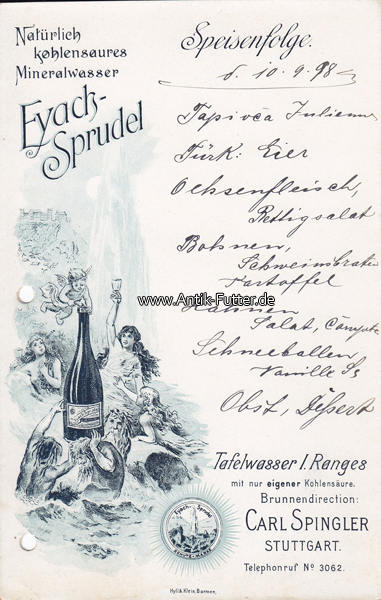 Natürlich
kohlensaures
Mineralwasser
Eyach-
Sprudel
Speisenfolge.
d. 10.9.98
Tapioca Julienne
Türk: Eier
Ochsenfleisch,
Rettigsalat
Bohnen,
Schweinsbraten
Kartoffel
Hahnen
Salat, Compote
Schneeballen
Vanille
Obst, Dessert
www.Antik-Futter.de
Tafelwasser I. Ranges
mit nur eigener Kohlensäure.
Brunnendirection:
CARL SPINGLER
STUTTGART.
Telephonruf No 3062.
Eyach-Sprudel